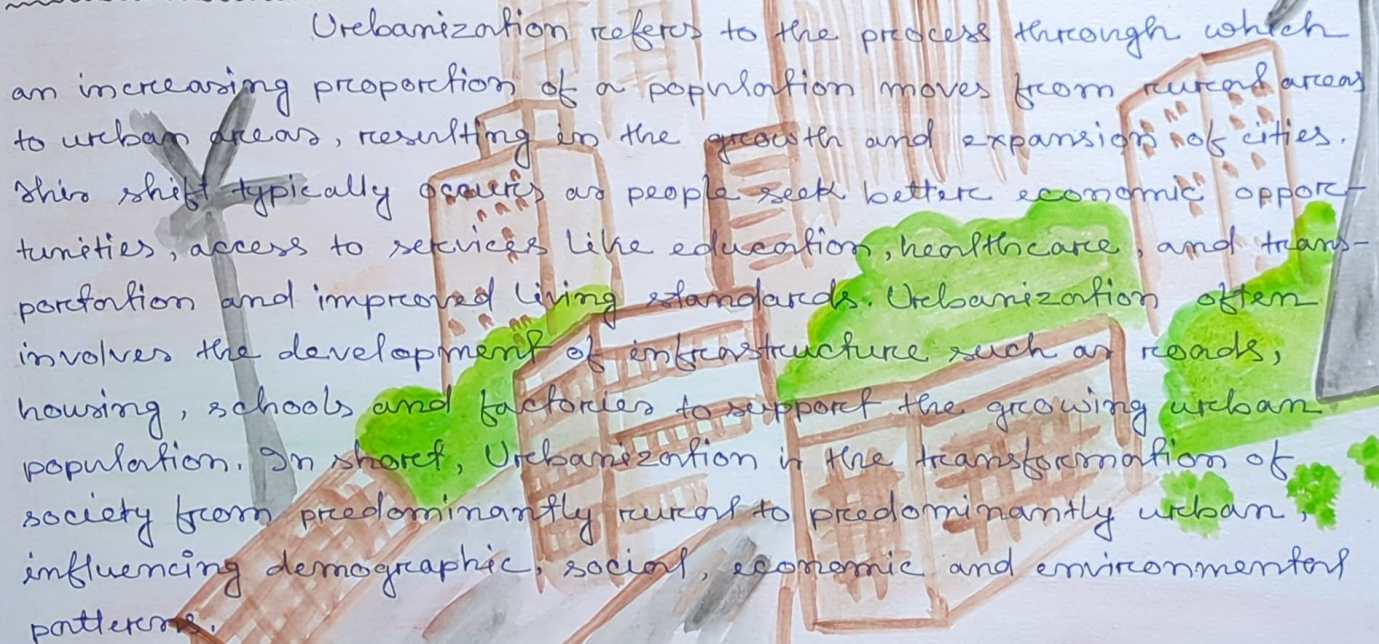 Urbanization refers to the process through which
an increasing proportion of a population moves from rural areas
to urban areas, resulting in the growth and expansion of cities.
This shift typically occurs as people seek better economic oppor-
tunities, access to services like education, healthcare, and trans-
portation and improved living standards. Urbanization often
involves the development of infrastructure such as roads,
housing, schools and factories to support the growing urban
population. In short, Urbanization is the transformation of
society from predominantly rural to predominantly urban,
influencing demographic, social, economic and environmental
patterns.